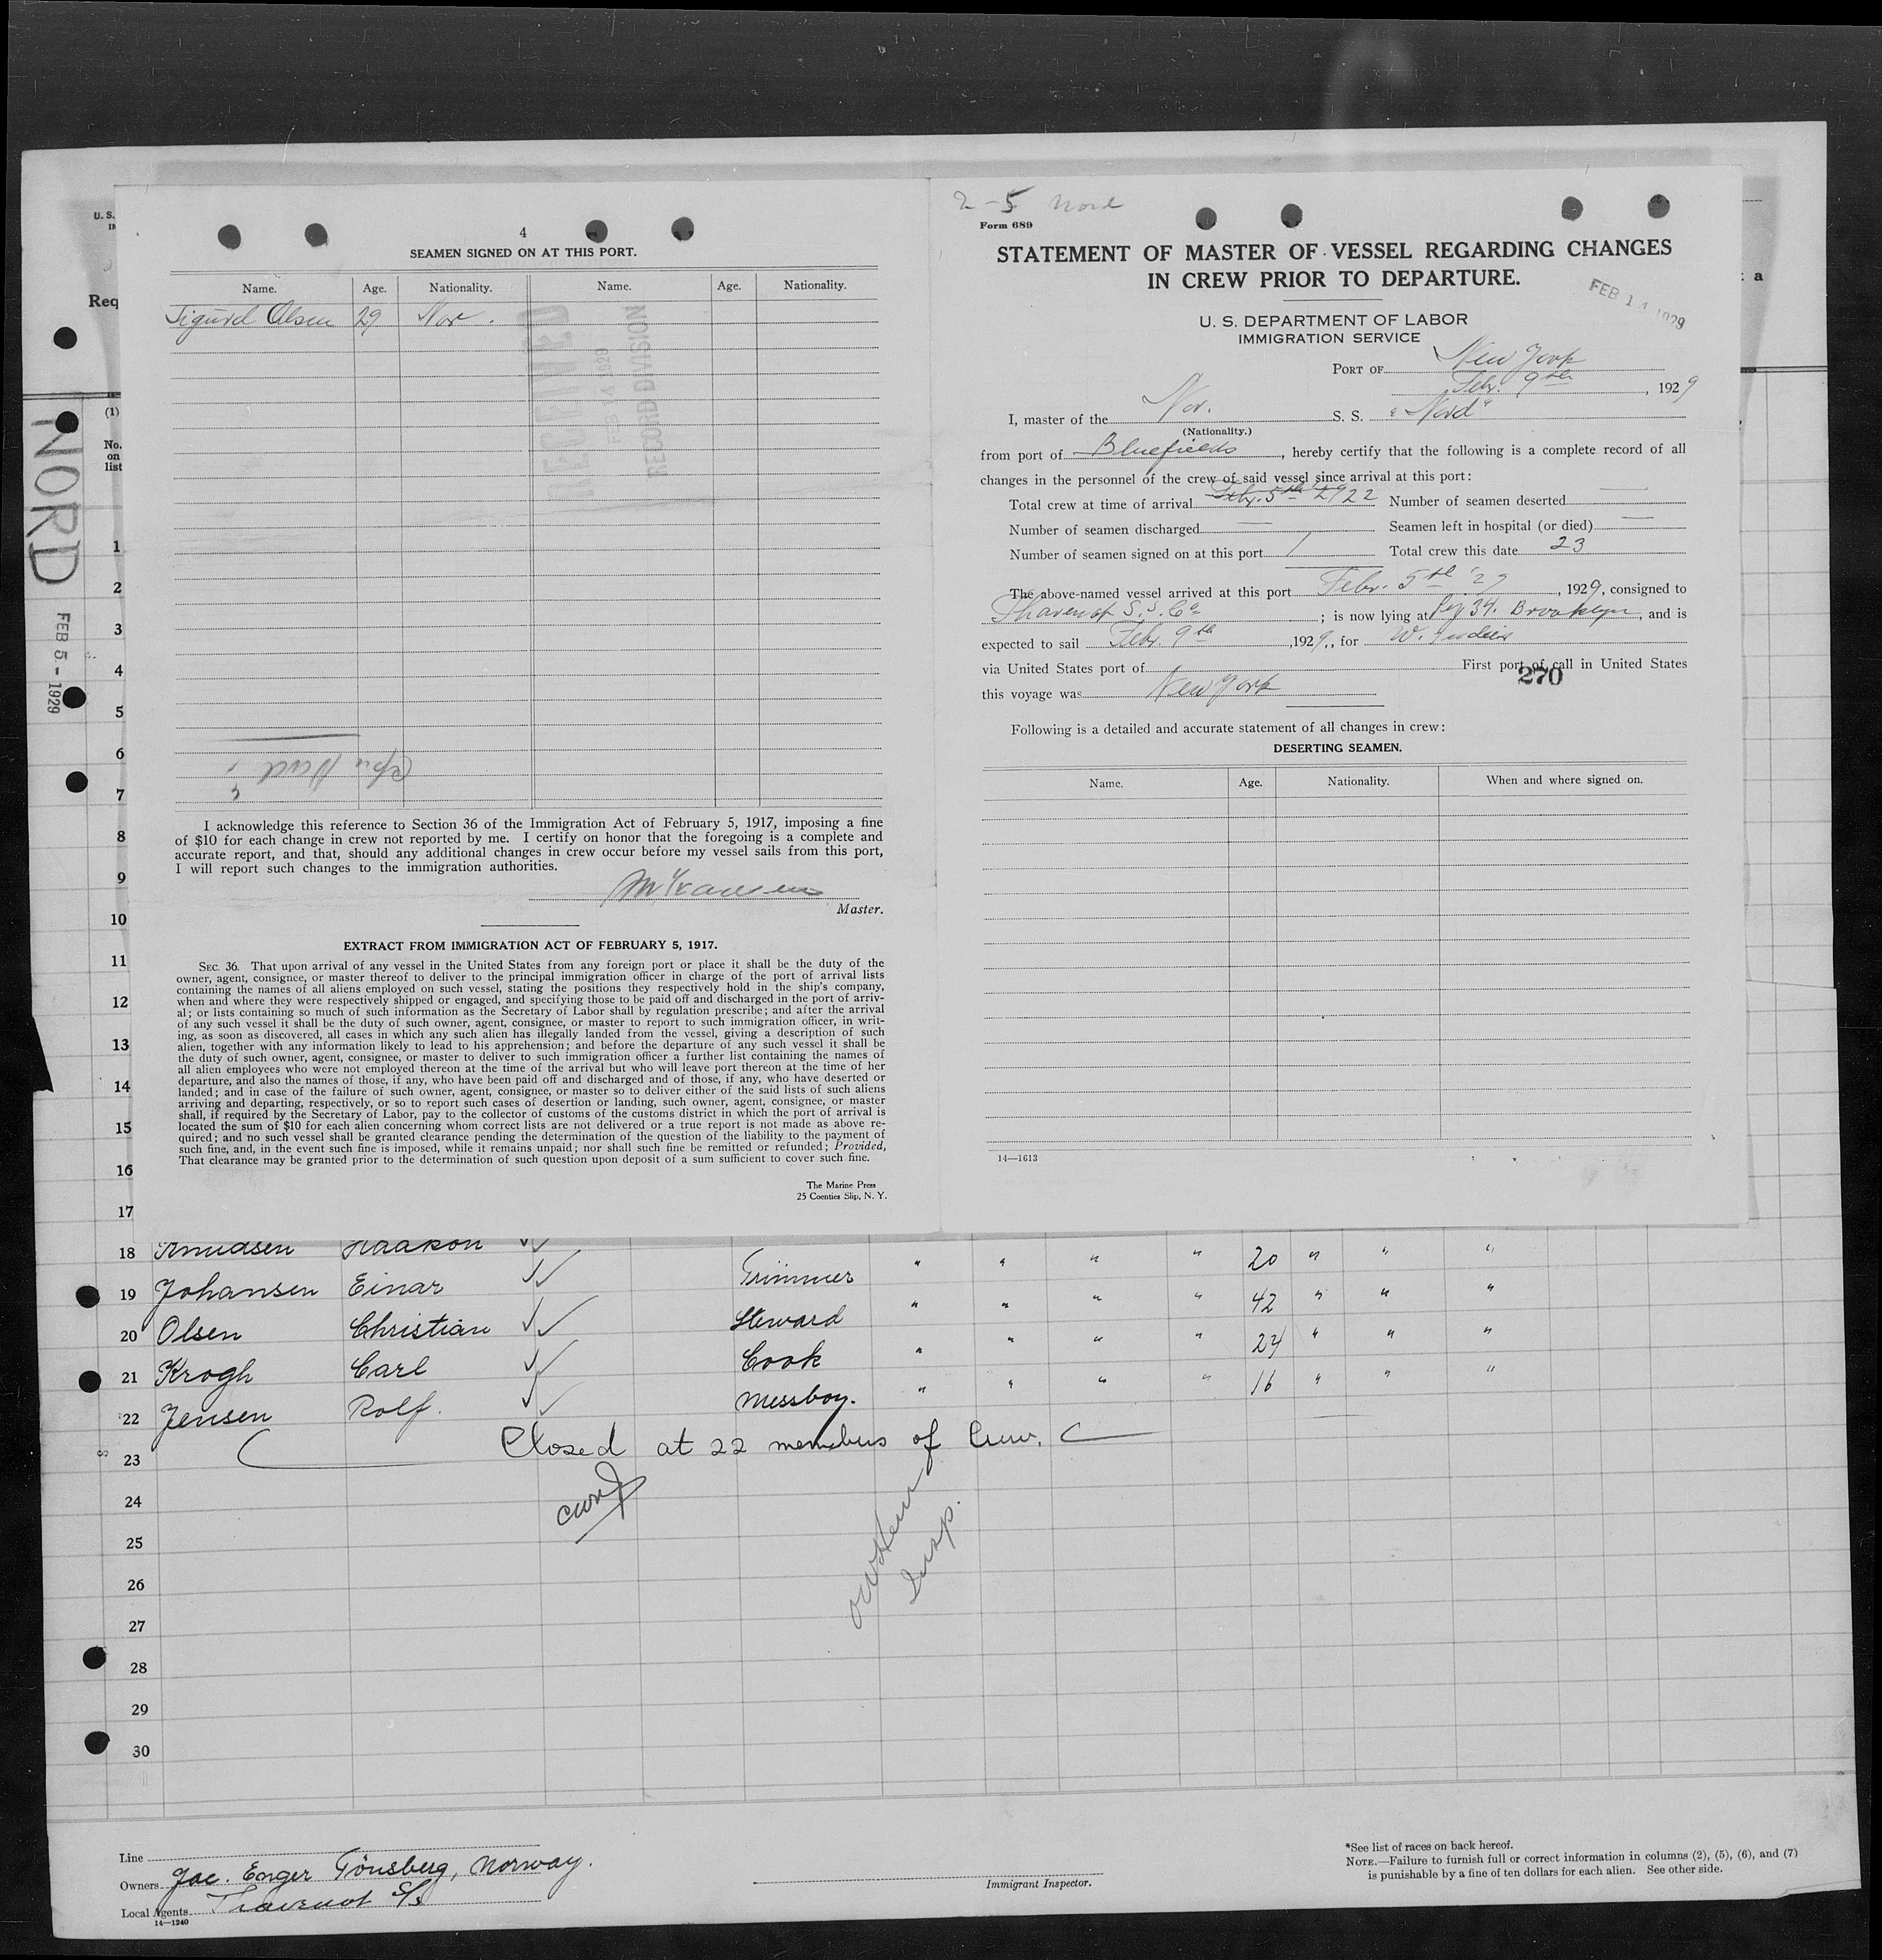 4
SEAMEN SIGNED ON AT THIS PORT.
Name. Age. Nationality. Name. Age. Nationality.
Sigurd Olsen 29 Nor.
RECEIVED
FEB 14 1929
RECORD DIVISION
I acknowledge this reference to Section 36 of the Immigration Act of February 5, 1917, imposing a fine
of $10 for each change in crew not reported by me. I certify on honor that the foregoing is a complete and
accurate report, and that, should any additional changes in crew occur before my vessel sails from this port,
I will report such changes to the immigration authorities.
Master.
EXTRACT FROM IMMIGRATION ACT OF FEBRUARY 5, 1917.
SEC. 36. That upon arrival of any vessel in the United States from any foreign port or place it shall be the duty of the
owner, agent, consignee, or master thereof to deliver to the principal immigration officer in charge of the port of arrival lists
containing the names of all aliens employed on such vessel, stating the positions they respectively hold in the ship's company,
when and where they were respectively shipped or engaged, and specifying those to be paid off and discharged in the port of arriv-
al; or lists containing so much of such information as the Secretary of Labor shall by regulation prescribe; and after the arrival
of any such vessel it shall be the duty of such owner, agent, consignee, or master to report to such immigration officer, in writ-
ing, as soon as discovered, all cases in which any such alien has illegally landed from the vessel, giving a description of such
alien, together with any information likely to lead to his apprehension; and before the departure of any such vessel it shall be
the duty of such owner, agent, consignee, or master to deliver to such immigration officer a further list containing the names of
all alien employees who were not employed thereon at the time of the arrival but who will leave port thereon at the time of her
departure, and also the names of those, if any, who have been paid off and discharged and of those, if any, who have deserted or
landed; and in case of the failure of such owner, agent, consignee, or master so to deliver either of the said lists of such aliens
arriving and departing, respectively, or so to report such cases of desertion or landing, such owner, agent, consignee, or master
shall, if required by the Secretary of Labor, pay to the collector of customs of the customs district in which the port of arrival is
located the sum of $10 for each alien concerning whom correct lists are not delivered or a true report is not made as above re-
quired; and no such vessel shall be granted clearance pending the determination of the question of the liability to the payment of
such fine, and, in the event such fine is imposed, while it remains unpaid; nor shall such fine be remitted or refunded; Provided,
That clearance may be granted prior to the determination of such question upon deposit of a sum sufficient to cover such fine.
The Marine Press
25 Coenties Slip, N. Y.
2-5 Nord
Form 689
STATEMENT OF MASTER OF VESSEL REGARDING CHANGES
IN CREW PRIOR TO DEPARTURE.
FEB 14 1929
U. S. DEPARTMENT OF LABOR
IMMIGRATION SERVICE
PORT OF New York
Febr. 9th, 1929
I, master of the Nor. S. S. "Nord"
(Nationality.)
from port of Bluefields, hereby certify that the following is a complete record of all
changes in the personnel of the crew of said vessel since arrival at this port:
Total crew at time of arrival Febr. 5th 29 22 Number of seamen deserted —
Number of seamen discharged — Seamen left in hospital (or died) —
Number of seamen signed on at this port 1 Total crew this date 23
The above-named vessel arrived at this port Febr. 5th '29, 1929, consigned to
S.S. Co ; is now lying at 34. Brooklyn, and is
expected to sail Febr. 9th, 1929, for W. Indies
via United States port of First port of call in United States
270
this voyage was New York
Following is a detailed and accurate statement of all changes in crew:
DESERTING SEAMEN.
Name. Age. Nationality. When and where signed on.
14—1613
U. S.
Req
a
(1)
No.
on
list
NORD
FEB 5 - 1929
1
2
3
4
5
6
7
8
9
10
11
12
13
14
15
16
17
18 Knudsen Haakon
19 Johansen Einar Trimmer " " " " 20 " " "
20 Olsen Christian Steward " " " " 42 " " "
21 Krogh Carl Cook " " " " 24 " " "
22 Jensen Rolf. Messboy. " " " " 16 " " "
23 Closed at 22 members of Crew.
24
25 Insp.
26
27
28
29
30
Line
Owners Jac. Enger Tönsberg, Norway.
Local Agents S/S
14—1240
Immigrant Inspector.
*See list of races on back hereof.
NOTE.—Failure to furnish full or correct information in columns (2), (5), (6), and (7)
is punishable by a fine of ten dollars for each alien. See other side.